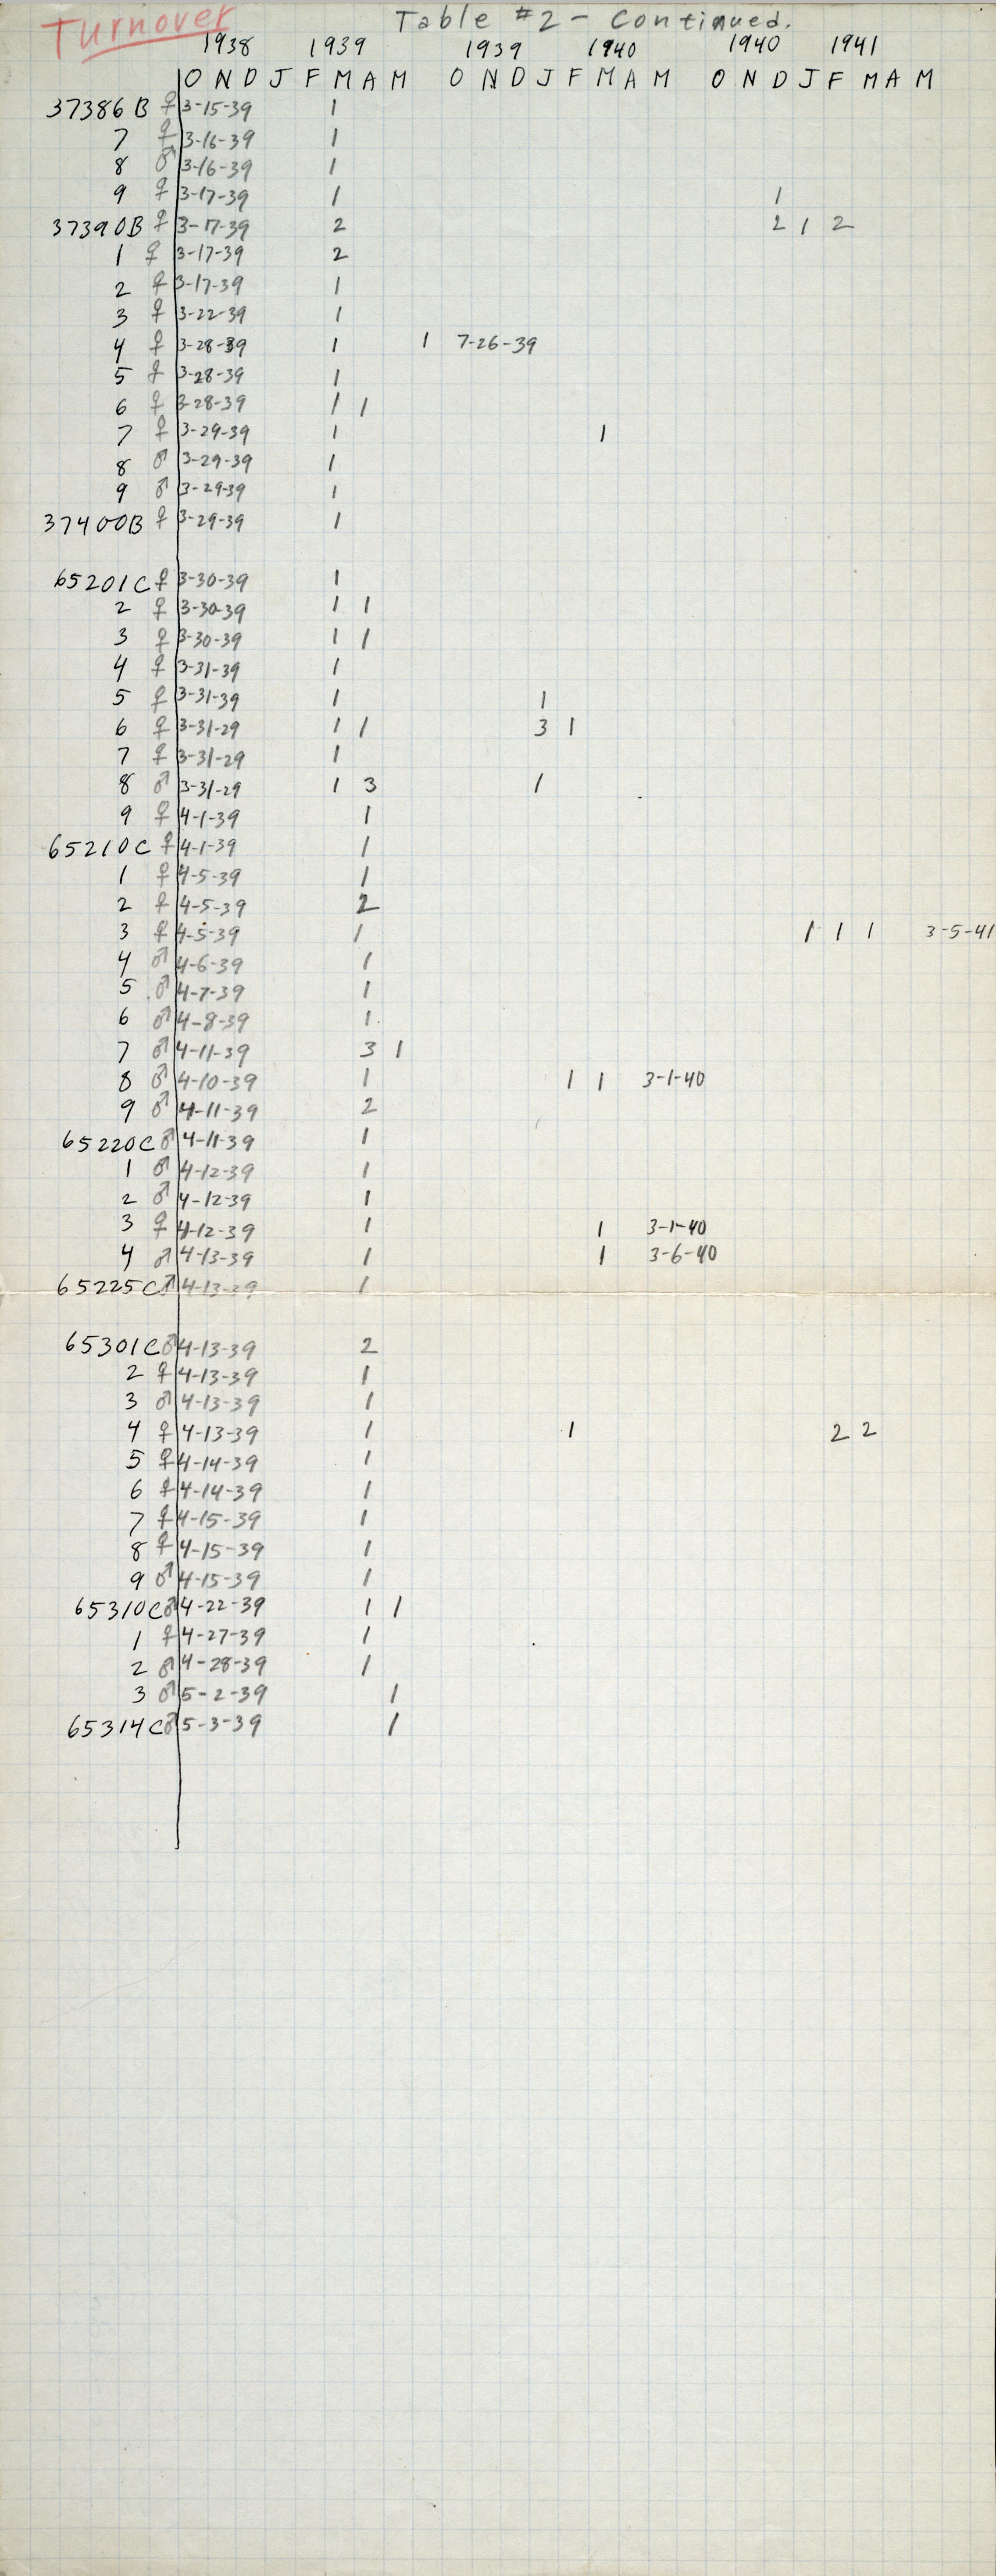 Turnover
Table #2 - Continued.
1938 1939 1939 1940 1940 1941
O N D J F M A M O N D J F M A M O N D J F M A M
37386B ♀ 3-15-39 1
7 ♀ 3-16-39 1
8 ♂ 3-16-39 1
9 ♀ 3-17-39 1 1
37390B ♀ 3-17-39 2 2 1 2
1 ♀ 3-17-39 2
2 ♀ 3-17-39 1
3 ♀ 3-22-39 1
4 ♀ 3-28-39 1 1 7-26-39
5 ♀ 3-28-39 1
6 ♀ 3-28-39 1 1
7 ♀ 3-29-39 1 1
8 ♂ 3-29-39 1
9 ♂ 3-29-39 1
37400B ♀ 3-29-39 1
65201C ♀ 3-30-39 1
2 ♀ 3-30-39 1 1
3 ♀ 3-30-39 1 1
4 ♀ 3-31-39 1
5 ♀ 3-31-39 1 1
6 ♀ 3-31-29 1 1 3 1
7 ♀ 3-31-29 1
8 ♂ 3-31-29 1 3 1
9 ♀ 4-1-39 1
65210C ♀ 4-1-39 1
1 ♀ 4-5-39 1
2 ♀ 4-5-39 2
3 ♀ 4-5-39 1 1 1 1 3-5-41
4 ♂ 4-6-39 1
5 ♂ 4-7-39 1
6 ♂ 4-8-39 1
7 ♂ 4-11-39 3 1
8 ♂ 4-10-39 1 1 1 3-1-40
9 ♂ 4-11-39 2
65220C ♂ 4-11-39 1
1 ♂ 4-12-39 1
2 ♂ 4-12-39 1
3 ♀ 4-12-39 1 1 3-1-40
4 ♂ 4-13-39 1 1 3-6-40
65225C ♂ 4-13-39 1
65301C ♂ 4-13-39 2
2 ♀ 4-13-39 1
3 ♂ 4-13-39 1
4 ♀ 4-13-39 1 1 2 2
5 ♀ 4-14-39 1
6 ♀ 4-14-39 1
7 ♀ 4-15-39 1
8 ♀ 4-15-39 1
9 ♂ 4-15-39 1
65310C ♂ 4-22-39 1 1
1 ♀ 4-27-39 1
2 ♂ 4-28-39 1
3 ♂ 5-2-39 1
65314C ♂ 5-3-39 1